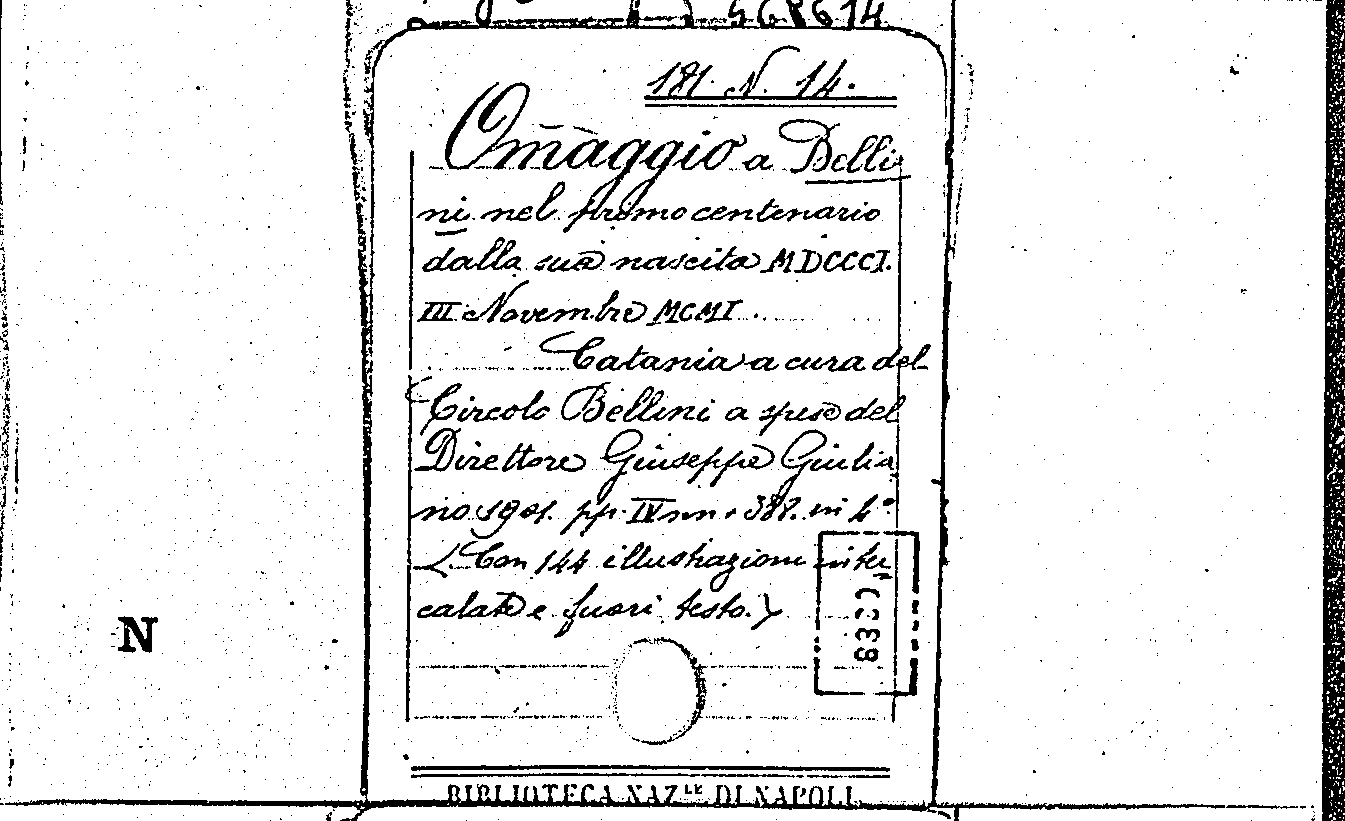 568614
181. N. 14.
Omaggio a Belli
ni nel primo centenario
dalla sua nascita MDCCCI.
III Novembre MCMI.
Catania a cura del
Circolo Bellini a spese del
Direttore Giuseppe Giulia
no 1901. pp. IV nn + 388. in 4°.
(Con 144 illustrazioni inter
calate e fuori testo.)
N
BIBLIOTECA NAZ.LE DI NAPOLI